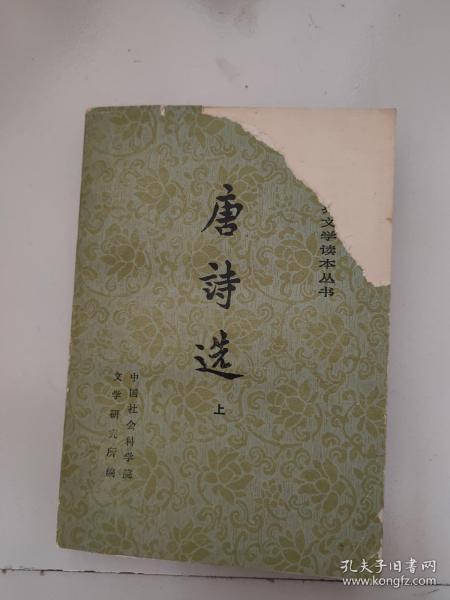 文学读本丛书
唐詩选
上
中国社会科学院
文学研究所编
孔夫子旧书网
www.kongfz.com